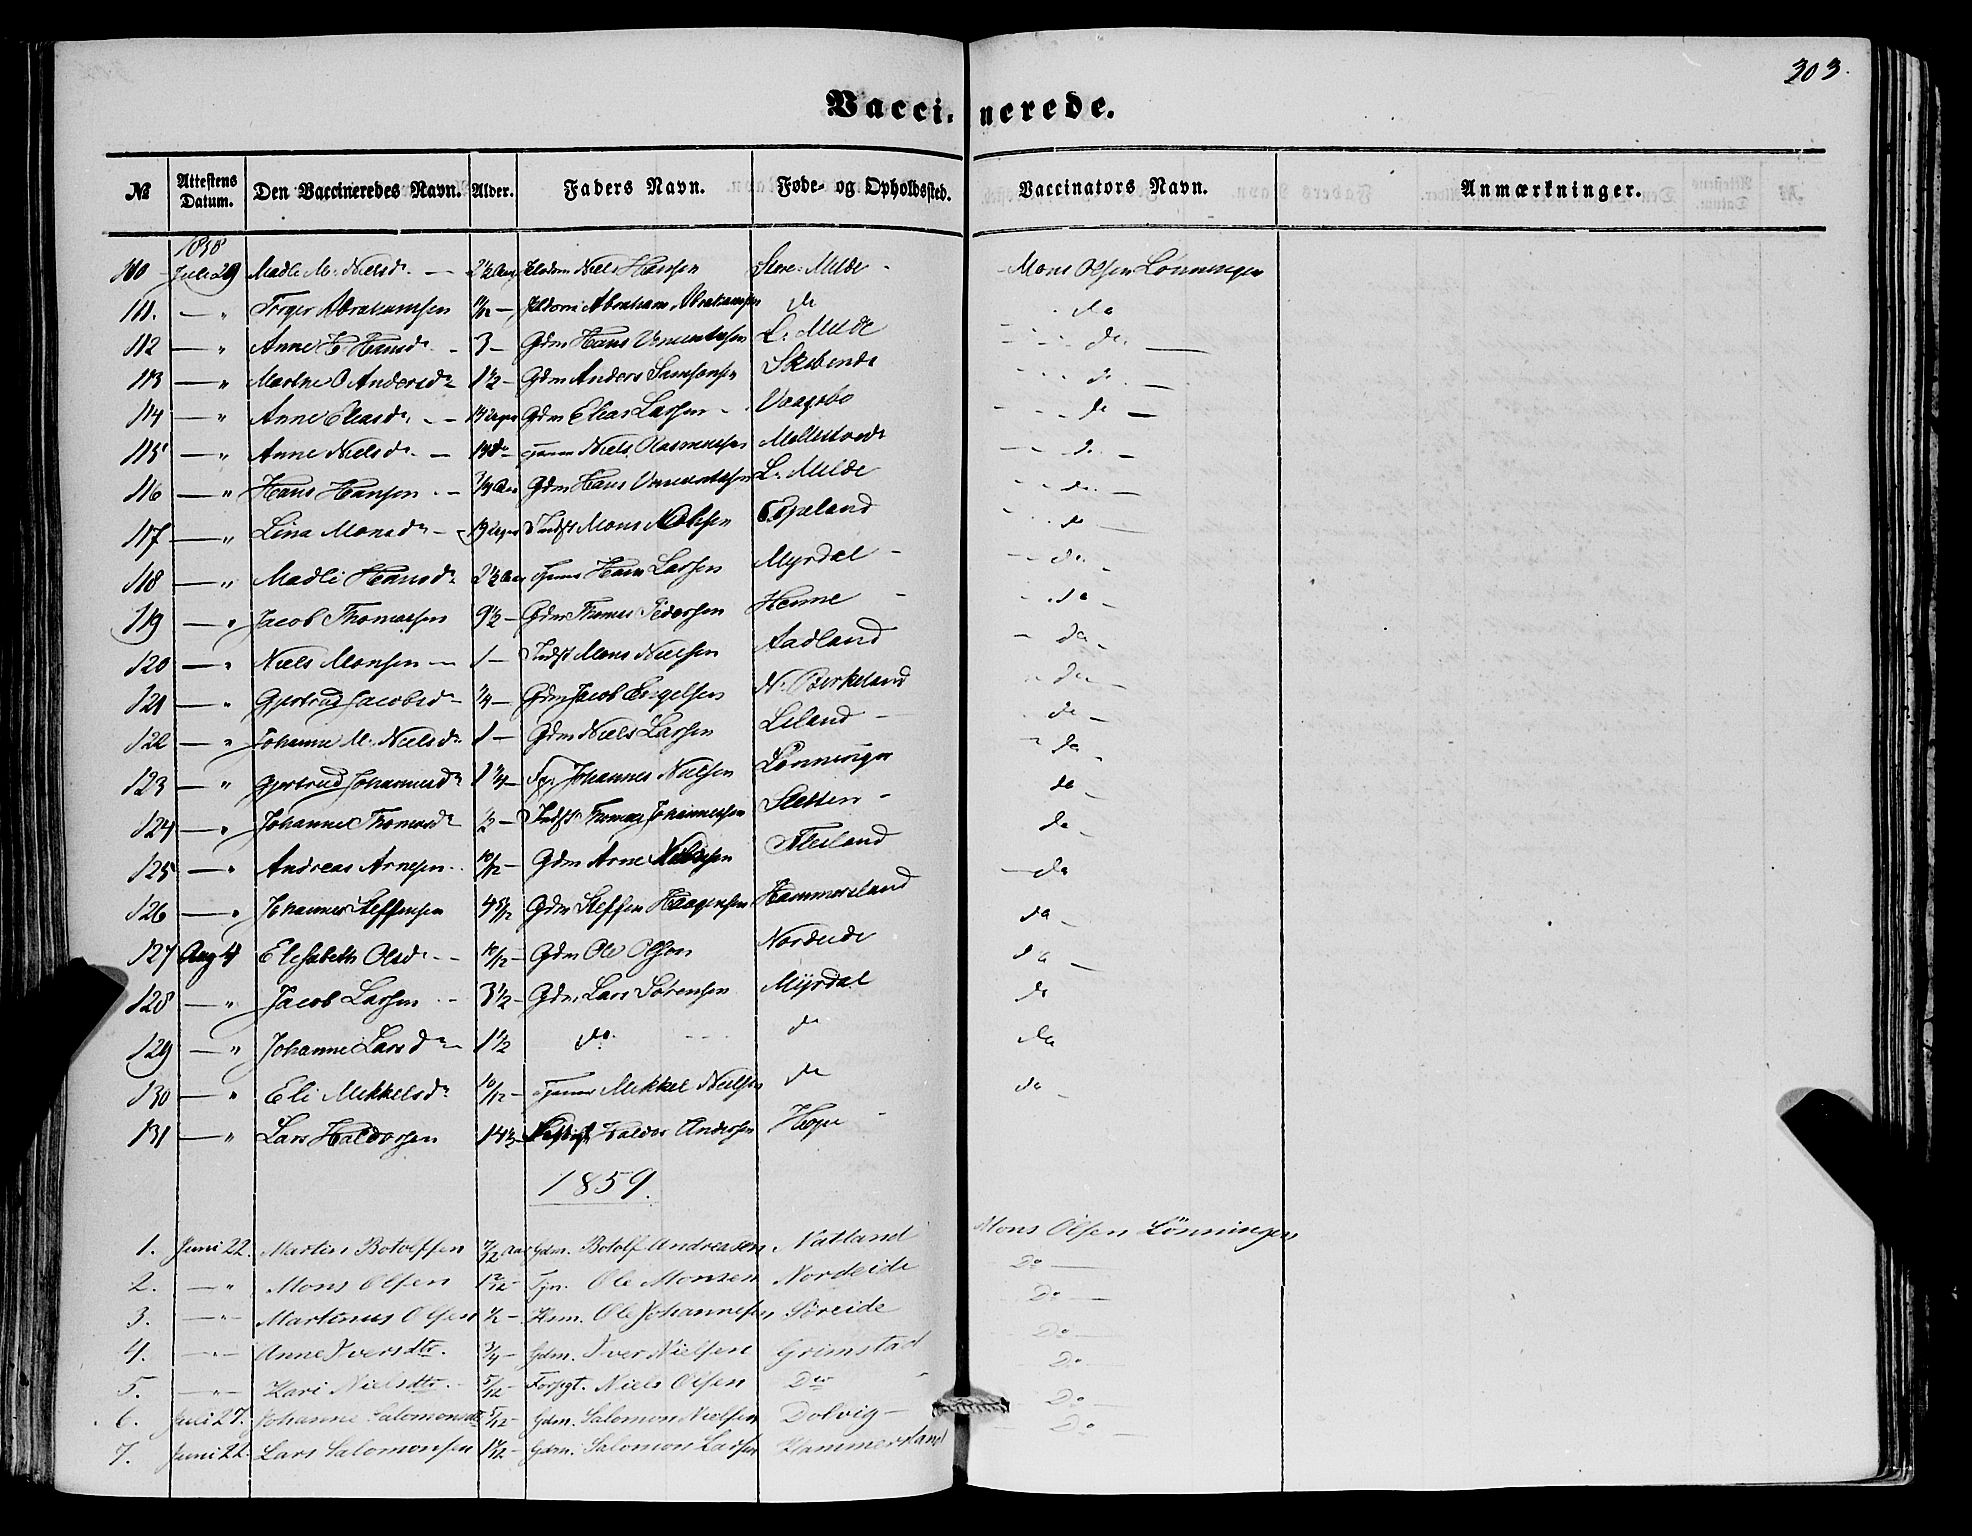 303.
Vaccinerede.
№ Attestens Datum. Den Vaccineredes Navn. Alder. Faders Navn. Føde- og Opholdssted. Vaccinators Navn. Anmærkninger.
1858
110 Juli 29 Madli M. Nielsdr 2½ Aar Niels Hansen Store Milde Mons Olsen Lønningen
111. — " Abrahamsen Abraham Abrahamsen do do
112 — " Anne H. Hansdr 3 — Gdm Hans L. Milde do
113 — " Marthe O Andersdr 1½ — Gdm Anders Samsonsen do
114 — " Anne Eliasdr Gdm Elias Larsen Vaagsbø do
115 — " Anne Nielsdr Niels Rasmussen do
116 — " Hans Hansen ¾ Aar Gdm Hans L. Milde do
117 — " Lina Monsdr Indst Mons Espeland do
118 — " Madli Hansdr 2½ Aar Hans Larsen Myrdal do
119 — " Jacob Thomassen 9½ — Gdm Thomas Pedersen Henne do
120 — " Niels Monsen 1 — Indst Mons Nielsen Aadland do
121 — " Gjertrud Jacobsdr ¼ — Gdm Jacob Engelsen N. Birkeland do
122 — " Johanne M. Nielsdr 1 — Gdm Niels Larsen Liland do
123 — " Gjertrud Johannesdr 1¼ — Johannes Nielsen Lønningen do
124 — " Johanne Thomasdr ½ — Indst Thomas Johannessen Sletten do
125 — " Andreas Arnesen 10/12 — Gdm Arne do
126 — " Johannes Steffensen Gdm Steffen Haagensen Hammersland do
127 Aug 4 Elisabeth Olsdr 10/12 — Gdm Ole Olson Nordeide do
128 — " Jacob Larsen 3½ — Gdm Lars Sørensen Myrdal do
129 — " Johanne Larsdr 1½ do do do
130 — " Eli Mikkelsdr 10/12 — Mikkel Nielsen do do
131 — " Lars Haldorsen 14½ Haldor Andersen Hope
1859.
1. Juni 22. Martin Botolfsen 7/12 Aar Gdm. Botolf Andreasen Natland Mons Olsen Lönningen
2. — " Mons Olsen Ole Monsen Nordeide Do
3. — " Martinus Olsen ½ — Hsm. Ole Johannesen Søreide Do
4. — " Anne Iversdtr. ¾ — Gdm. Iver Nielsen Grimstad Do
5. — " Kari Nielsdtr. 5/12 — Forpgt. Niels Olsen Do Do
6. Juli 27. Johanne Salomonsdtr 5/12 — Gdm. Salomon Nielsen Dolvig Do
7. Juni 22. Lars Salomonsen Gdm. Salomon Larsen Hammersland Do